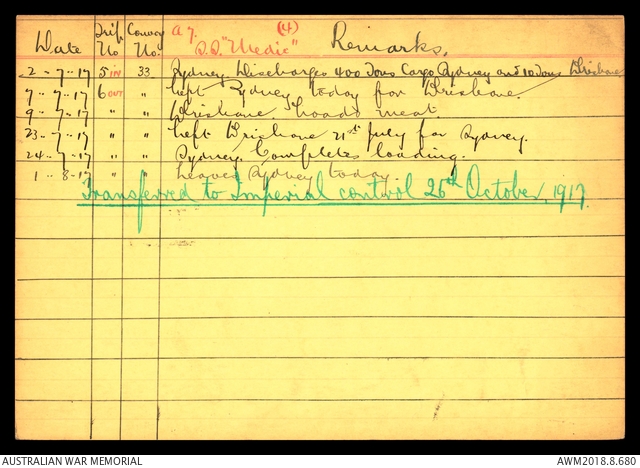 (4)
Date Trip No Convoy No. A 7. S.S. "Medic" Remarks.
2-7-17 5 IN 33 Sydney Discharges 400 Tons Cargo Sydney and 10 Tons Brisbane
7-7-17 6 OUT " Left Sydney today for Brisbane.
9-7-17 " " Brisbane. Loads meat.
23-7-17 " " Left Brisbane 21st July for Sydney.
24-7-17 " " Sydney. Completes loading.
1-8-17 " " Leaves Sydney today.
Transferred to Imperial control 26th October, 1917.
AUSTRALIAN WAR MEMORIAL AWM2018.8.680